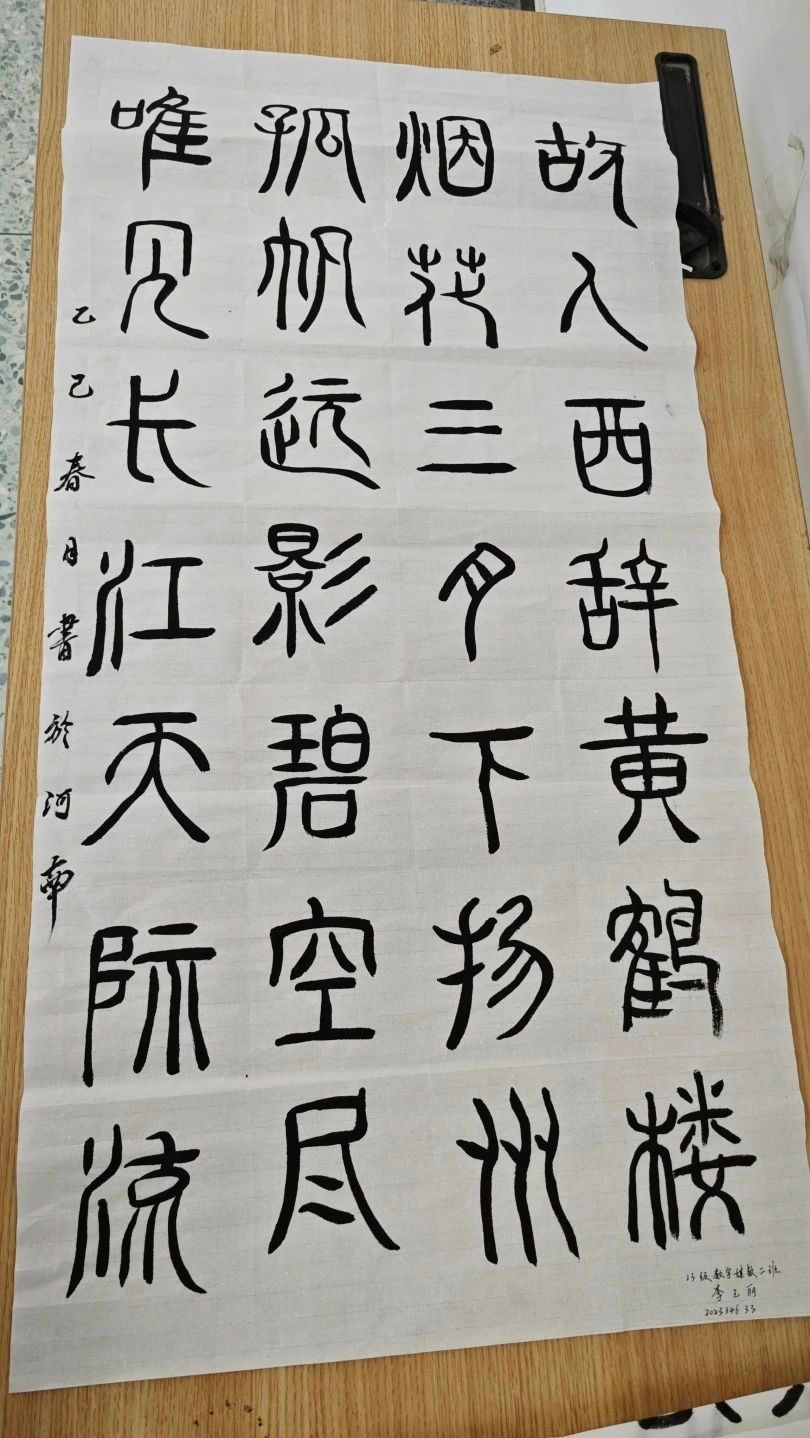 故人西辞黄鹤楼
烟花三月下扬州
孤帆远影碧空尽
唯见长江天际流
乙巳春月書於河南
23级数字媒体二班
李